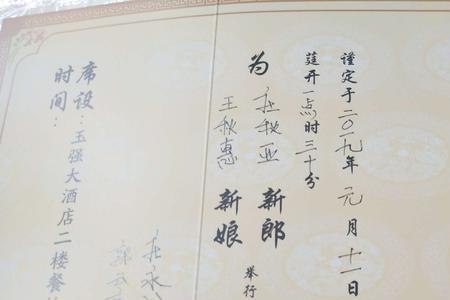 谨定于二〇一九年元月十一日
莛开一点时三十分
为 秋亚 新郎
王秋惠 新娘
举行
席设：玉强大酒店二楼餐
时间：